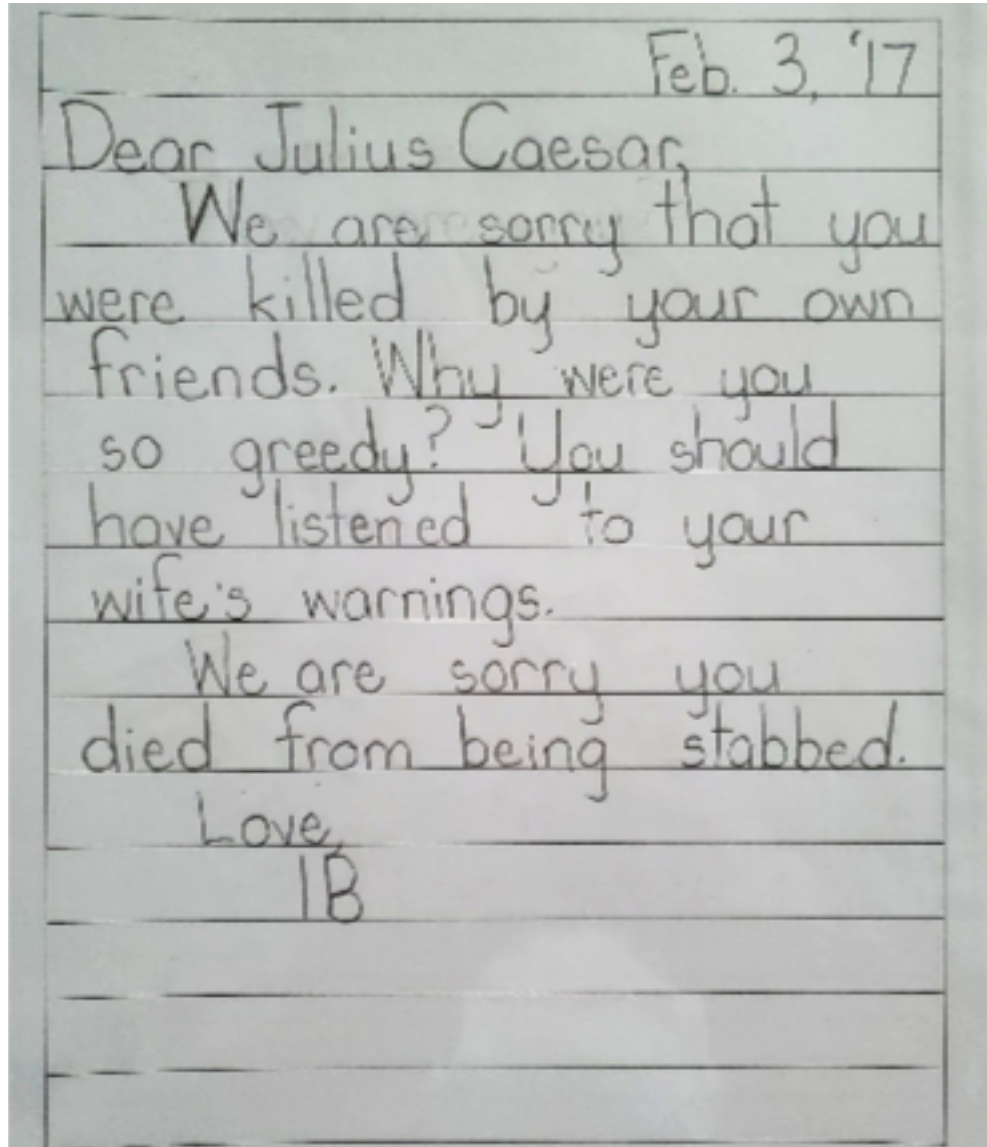 Feb. 3, '17
Dear Julius Caesar,
We are sorry that you
were killed by your own
friends. Why were you
so greedy? You should
have listened to your
wife's warnings.
We are sorry you
died from being stabbed.
Love,
1B